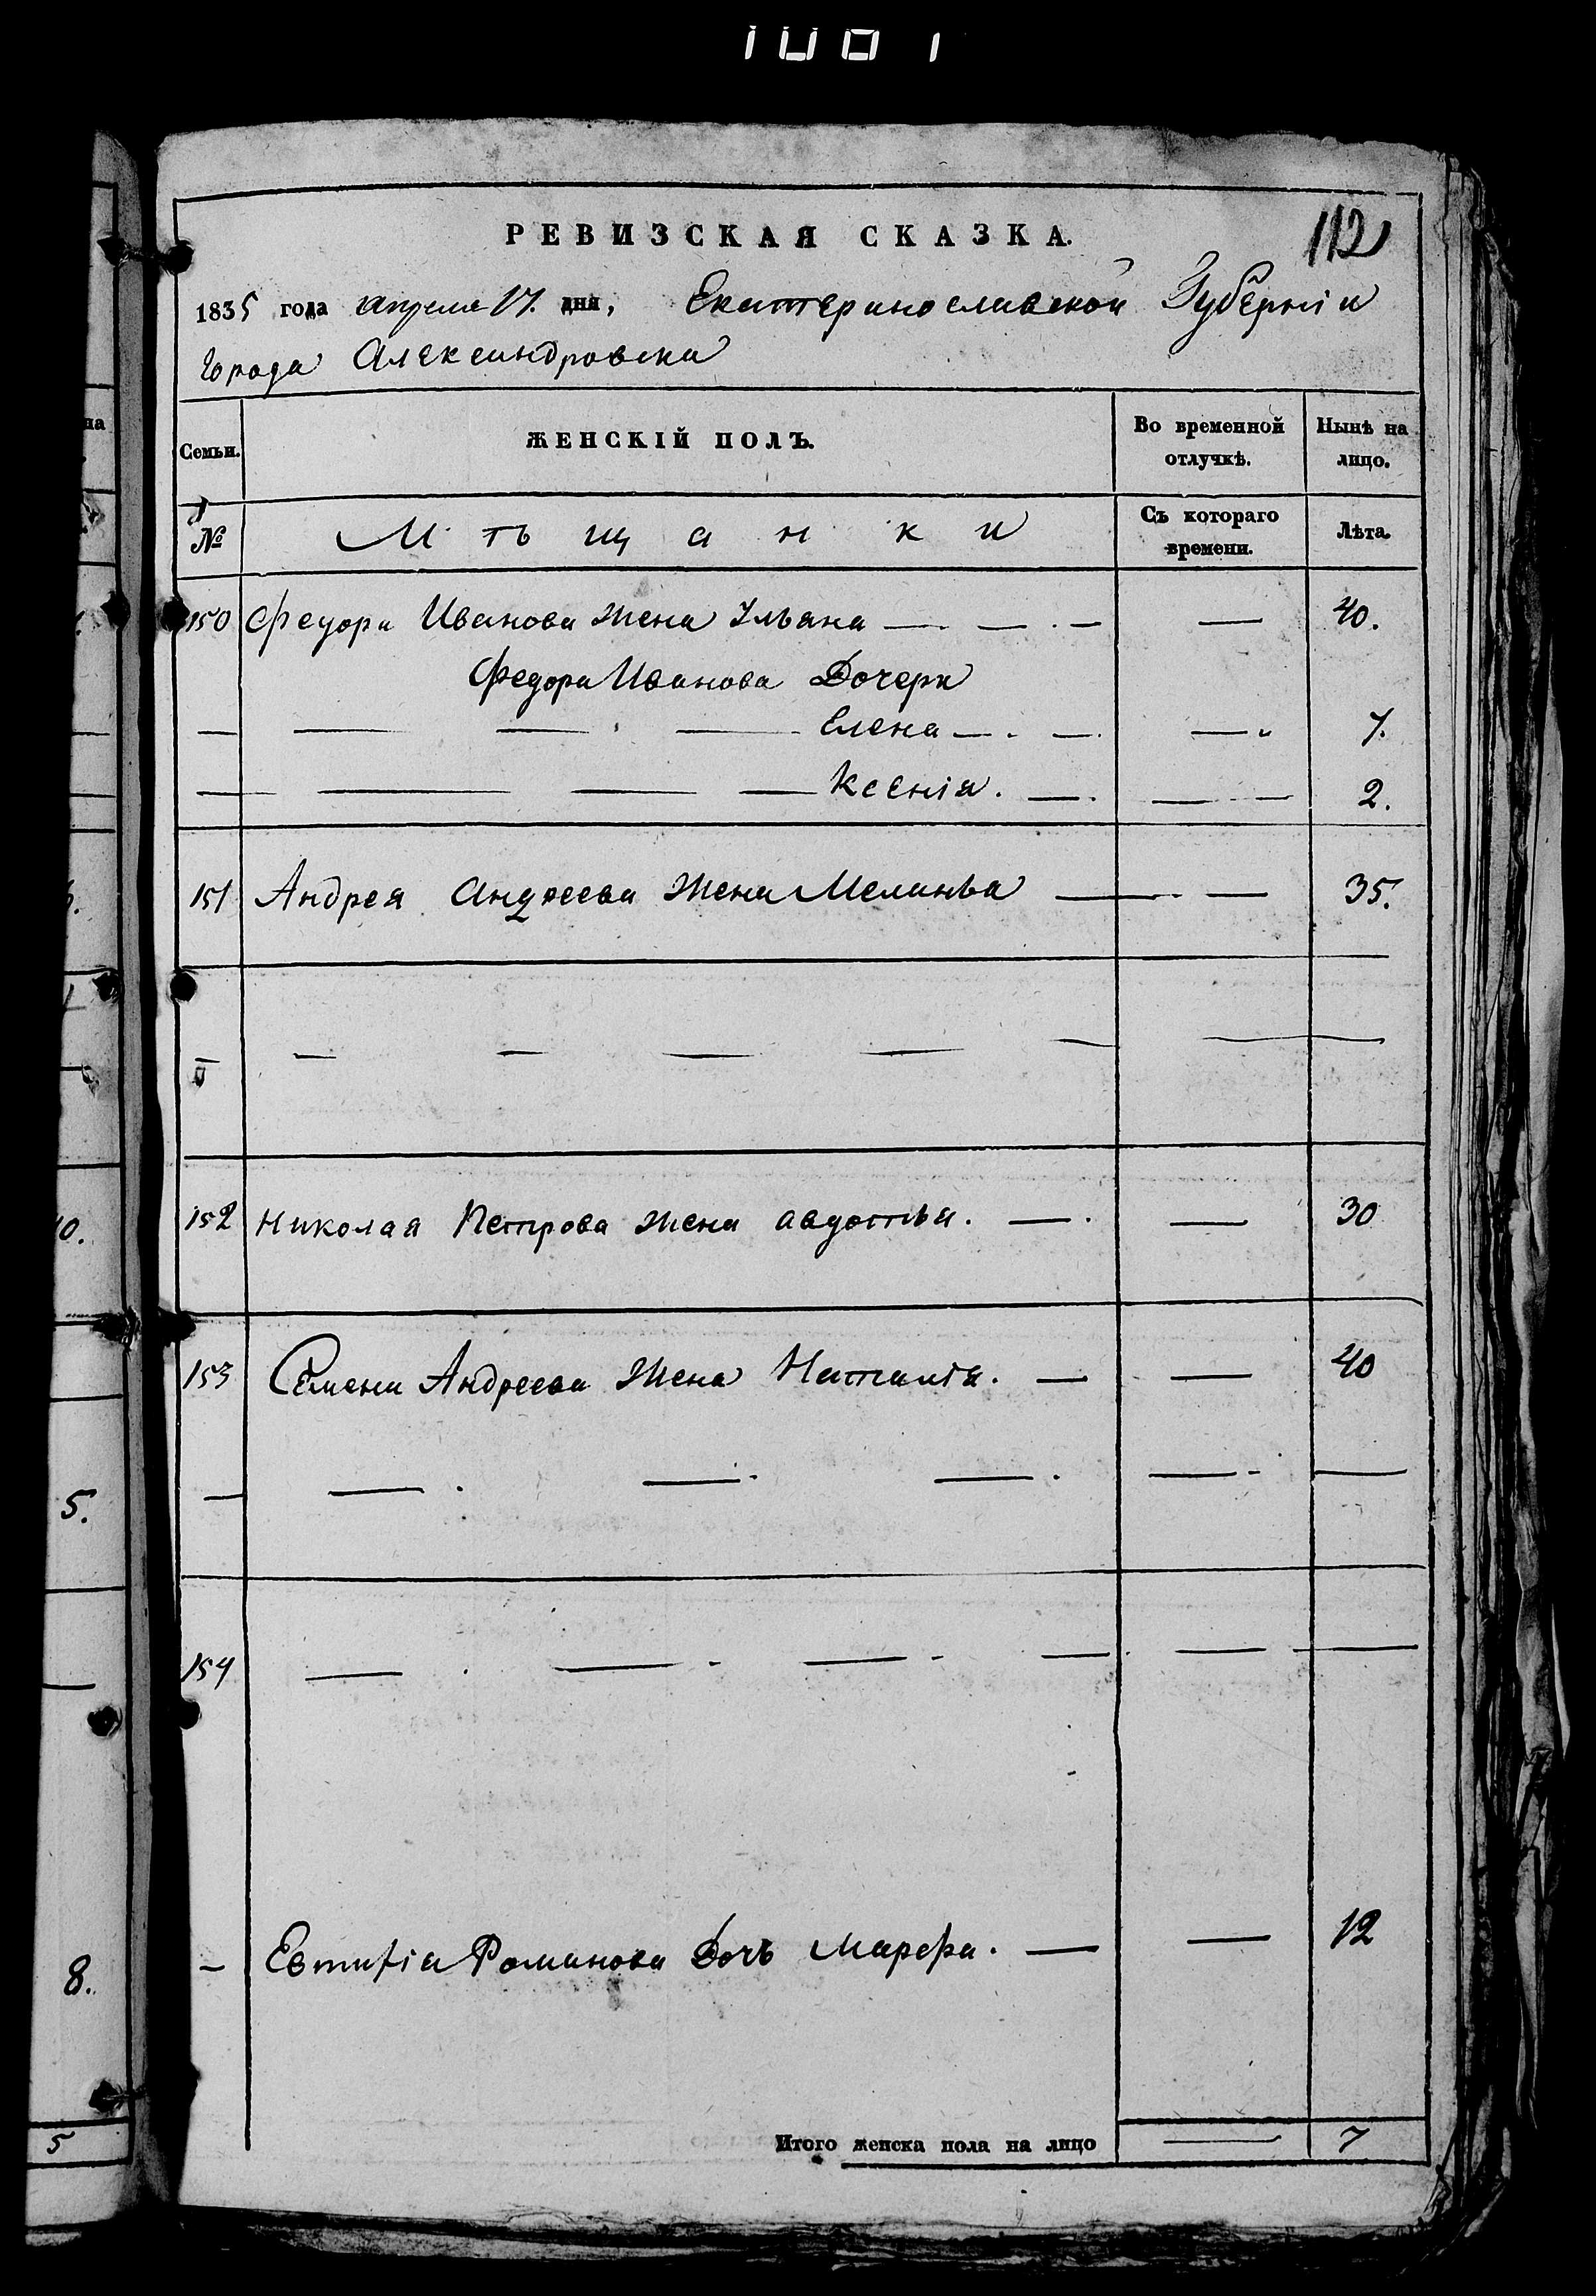 1001
112
РЕВИЗСКАЯ СКАЗКА.
1835 года апреля 17. дня, Екатеринославской Губерніи
города Александровска
Семьи. ЖЕНСКІЙ ПОЛЪ. Во временной отлучкѣ. Нынѣ на лицо.
№ Мѣщанки Съ котораго времени. Лѣта.
150 Федора Иванова жена Ульяна — — — — 40.
Федора Иванова Дочери
— — — — Елена — — — 7.
— — — — Ксенія. — — — 2.
151 Андрея Андреева жена Меланья — — 35.
— — — — — — —
152 Николая Петрова жена Авдотья. — — 30
153 Семена Андреева жена Наталія. — — 40
— — — — — —
154 — — — — — —
— Евтифія Романова Дочь Марфа. — — 12
Итого женска пола на лицо — 7
на
10.
5.
8.
5